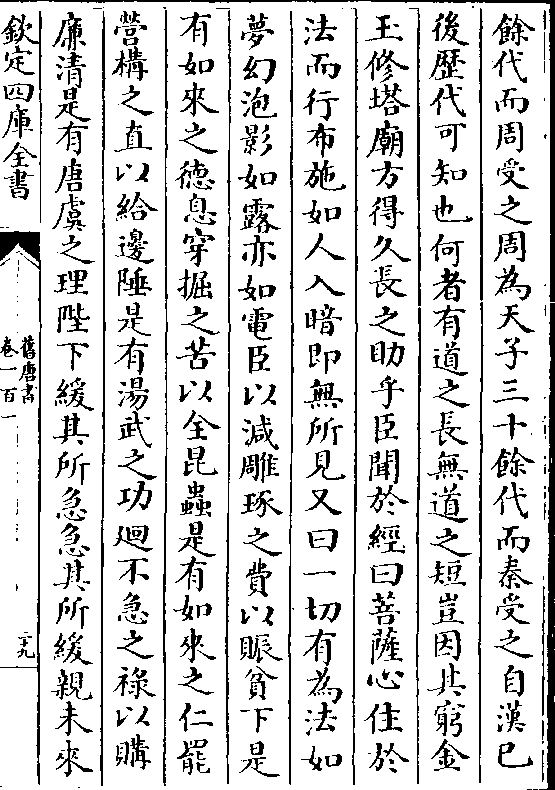 餘代而周受之周為天子三十餘代而秦受之自漢已
後歴代可知也何者有道之長無道之短豈因其窮金
玉修塔廟方得久長之助乎臣聞於經曰菩薩心住於
法而行布施如人入暗即無所見又曰一切有為法如
夢幻泡影如露亦如電臣以減雕琢之費以賑貧下是
有如來之徳息穿掘之苦以全昆蟲是有如來之仁罷
營構之直以給邊陲是有湯武之功廻不急之禄以購
廉清是有唐虞之理陛下緩其所急急其所緩親未來
欽定四庫全書
舊唐書
卷一百一
二十九